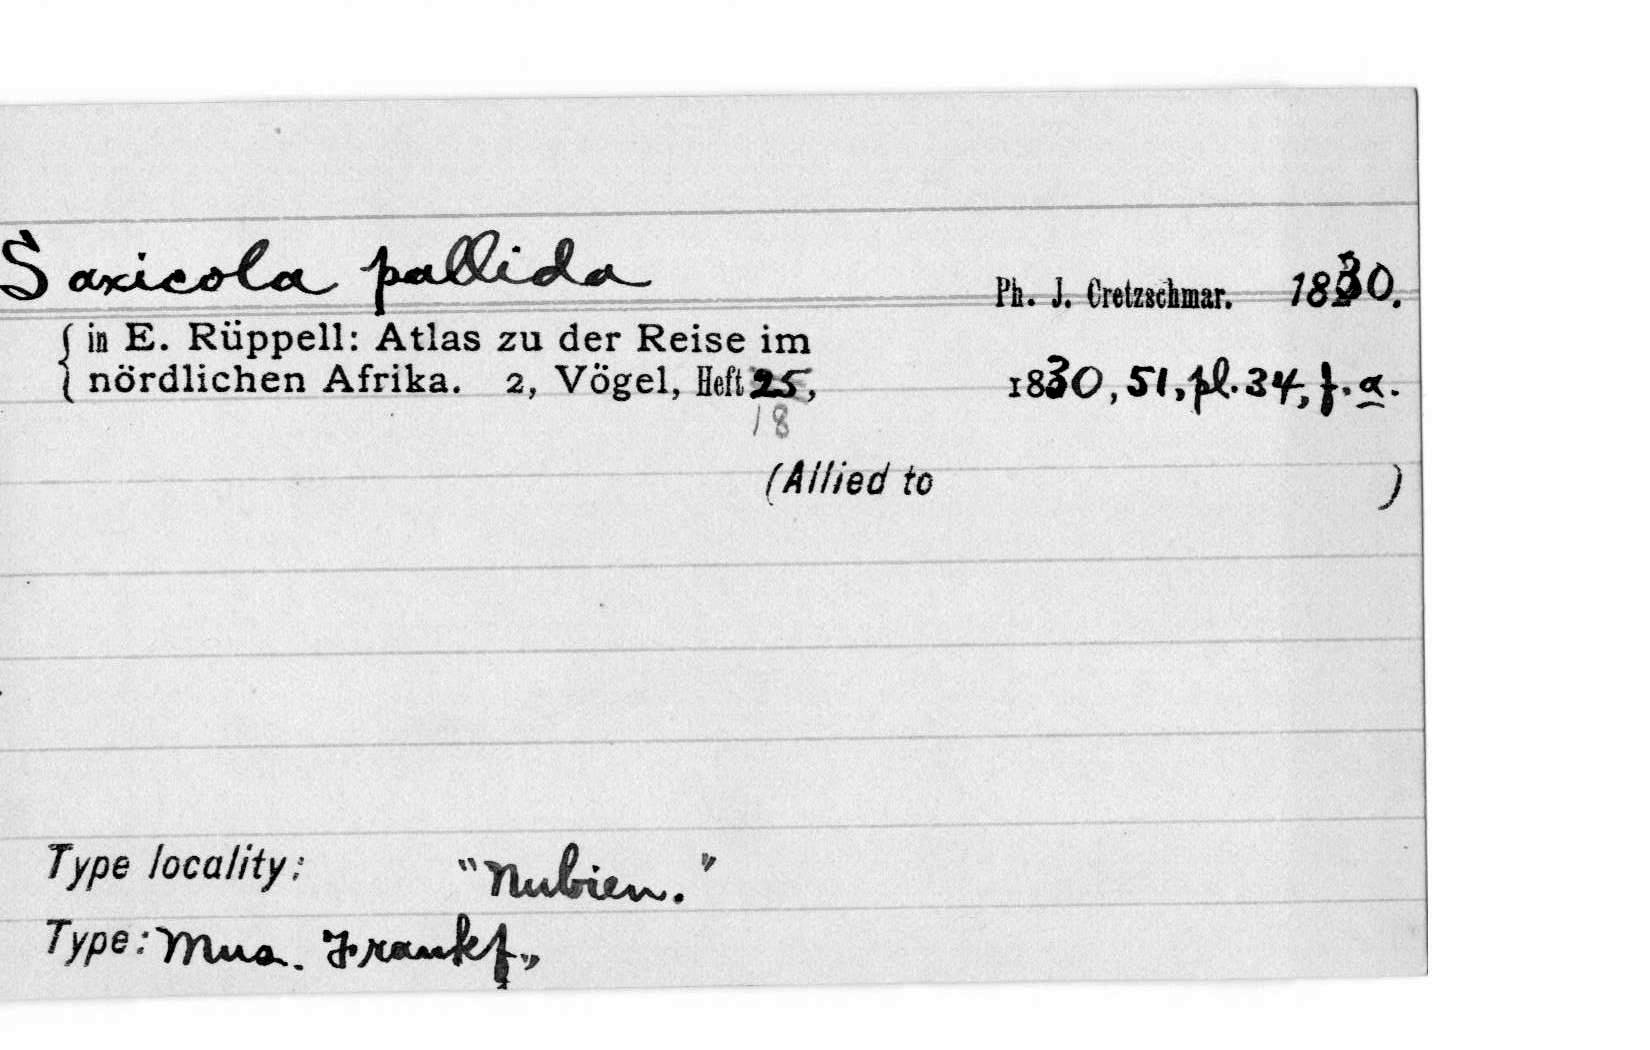 Saxicola pallida Ph. J. Cretzschmar. 1830.
in E. Rüppell: Atlas zu der Reise im
nördlichen Afrika. 2, Vögel, Heft 25, 1830, 51, pl. 34, f. a.
18
(Allied to )
Type locality: "Nubien."
Type: Mus. Frankf."